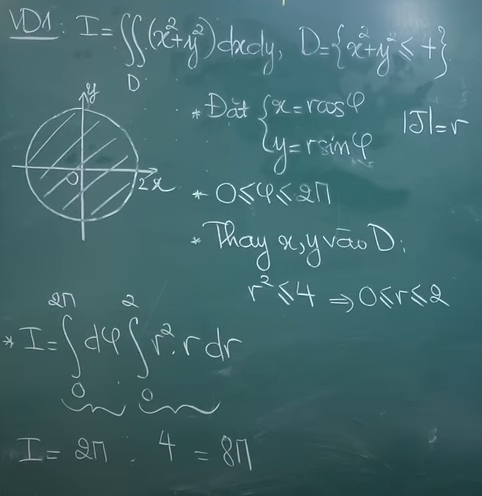 VD1: I = ∬_D (x²+y²)dxdy, D={x²+y² ≤ 4}
y
O 2 x
* Đặt { x = rcosφ
y = rsinφ
|J| = r
* 0 ≤ φ ≤ 2π
* Thay x, y vào D:
r² ≤ 4 ⇒ 0 ≤ r ≤ 2
* I = ∫₀^{2π} dφ ∫₀² r².r dr
I = 2π . 4 = 8π